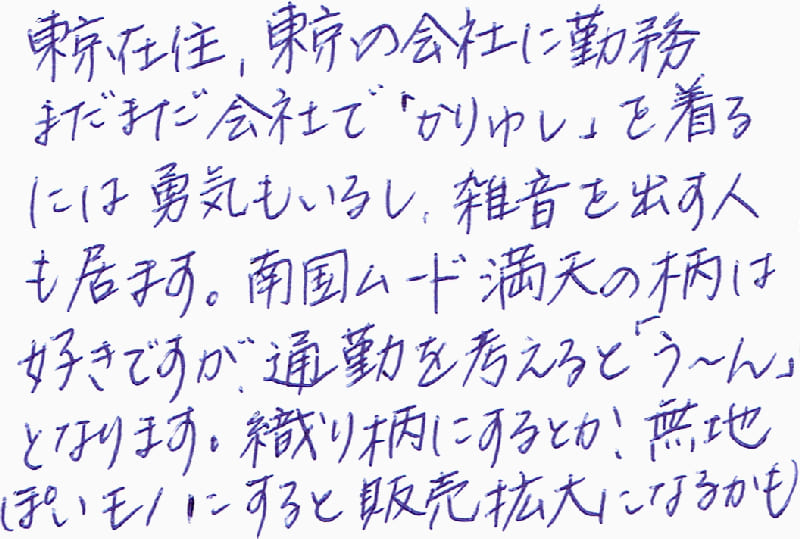 東京在住,東京の会社に勤務
まだまだ会社で「かりゆし」を着る
には勇気もいるし、雑音を出す人
も居ます。南国ムード満天の柄は
好きですが、通勤を考えると「う〜ん」
となります。織り柄にするとか!無地
ぽいモノにすると販売拡大になるかも)